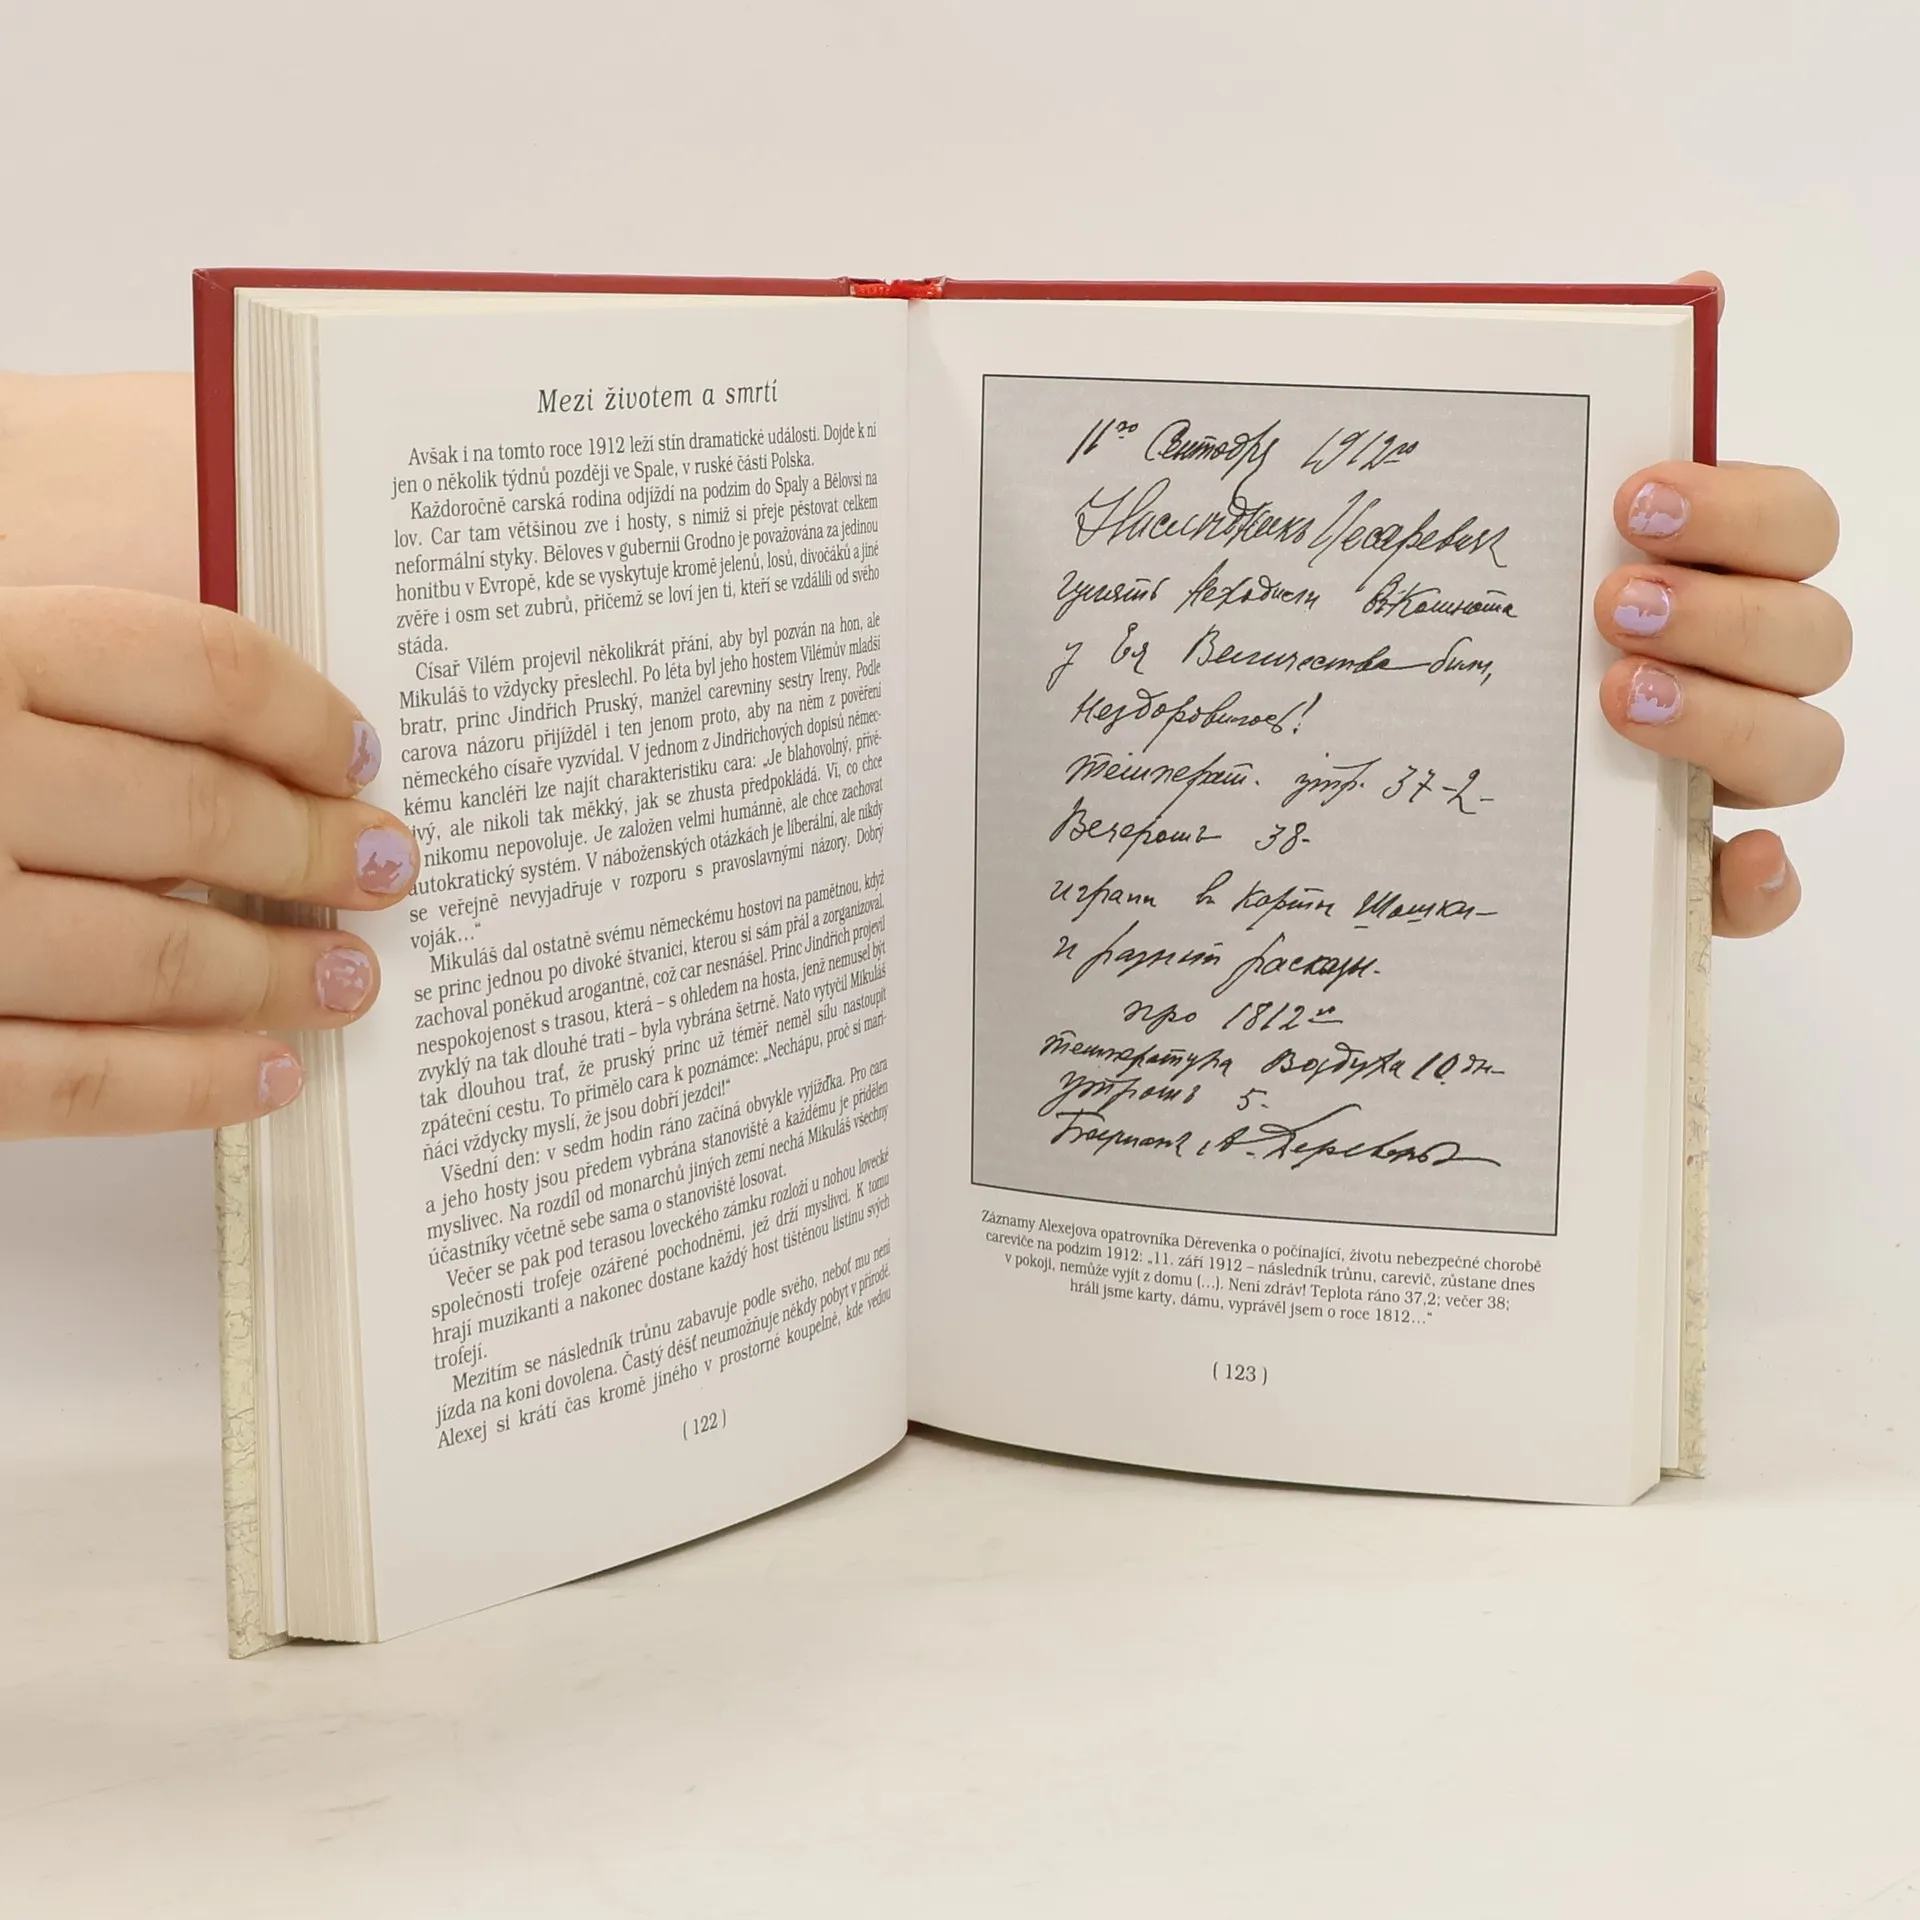 Mezi životem a smrtí
Avšak i na tomto roce 1912 leží stín dramatické události. Dojde k ní
jen o několik týdnů později ve Spale, v ruské části Polska.
Každoročně carská rodina odjíždí na podzim do Spaly a Bělovsi na
lov. Car tam většinou zve i hosty, s nimiž si přeje pěstovat celkem
neformální styky. Běloves v gubernii Grodno je považována za jedinou
honitbu v Evropě, kde se vyskytuje kromě jelenů, losů, divočáků a jiné
zvěře i osm set zubrů, přičemž se loví jen ti, kteří se vzdálili od svého
stáda.
Císař Vilém projevil několikrát přání, aby byl pozván na hon, ale
Mikuláš to vždycky přeslechl. Po léta byl jeho hostem Vilémův mladší
bratr, princ Jindřich Pruský, manžel carevniny sestry Ireny. Podle
carova názoru přijížděl i ten jenom proto, aby na něm z pověření
německého císaře vyzvídal. V jednom z Jindřichových dopisů němec-
kému kancléři lze najít charakteristiku cara: „Je blahovolný, přívě-
ivý, ale nikoli tak měkký, jak se zhusta předpokládá. Ví, co chce
nikomu nepovoluje. Je založen velmi humánně, ale chce zachovat
autokratický systém. V náboženských otázkách je liberální, ale nikdy
se veřejně nevyjadřuje v rozporu s pravoslavnými názory. Dobrý
voják…“
Mikuláš dal ostatně svému německému hostovi na pamětnou, když
se princ jednou po divoké štvanici, kterou si sám přál a zorganizoval,
zachoval poněkud arogantně, což car nesnášel. Princ Jindřich projevil
nespokojenost s trasou, která – s ohledem na hosta, jenž nemusel být
zvyklý na tak dlouhé trati – byla vybrána šetrně. Nato vytyčil Mikuláš
tak dlouhou trať, že pruský princ už téměř neměl sílu nastoupit
zpáteční cestu. To přimělo cara k poznámce: „Nechápu, proč si mari-
ňáci vždycky myslí, že jsou dobří jezdci!“
Všední den: v sedm hodin ráno začíná obvykle vyjížďka. Pro cara
a jeho hosty jsou předem vybrána stanoviště a každému je přidělen
myslivec. Na rozdíl od monarchů jiných zemí nechá Mikuláš všechny
účastníky včetně sebe sama o stanoviště losovat.
Večer se pak pod terasou loveckého zámku rozloží u nohou lovecké
společnosti trofeje ozářené pochodněmi, jež drží myslivci. K tomu
hrají muzikanti a nakonec dostane každý host tištěnou listinu svých
trofejí.
Mezitím se následník trůnu zabavuje podle svého, neboť mu není
jízda na koni dovolena. Častý déšť neumožňuje někdy pobyt v přírodě.
Alexej si krátí čas kromě jiného v prostorné koupelně, kde vedou
( 122 )
11го Сентебря 1912го
Наследникъ Цесаревичъ
гулять
у Ея Величества были,
температ. утр. 37-2-
Вечеромъ 38-
играли въ карты Шашки-
и
про 1812го
температура Воздуха 10 дн-
утромъ 5-
Боцманъ А. Деревенко
Záznamy Alexejova opatrovníka Děrevenka o počínající, životu nebezpečné chorobě
careviče na podzim 1912: „11. září 1912 – následník trůnu, carevič, zůstane dnes
v pokoji, nemůže vyjít z domu (…). Není zdráv! Teplota ráno 37,2; večer 38;
hráli jsme karty, dámu, vyprávěl jsem o roce 1812…“
( 123 )